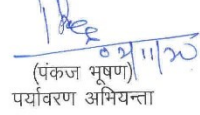 (पंकज भूषण)
पर्यावरण अभियन्ता